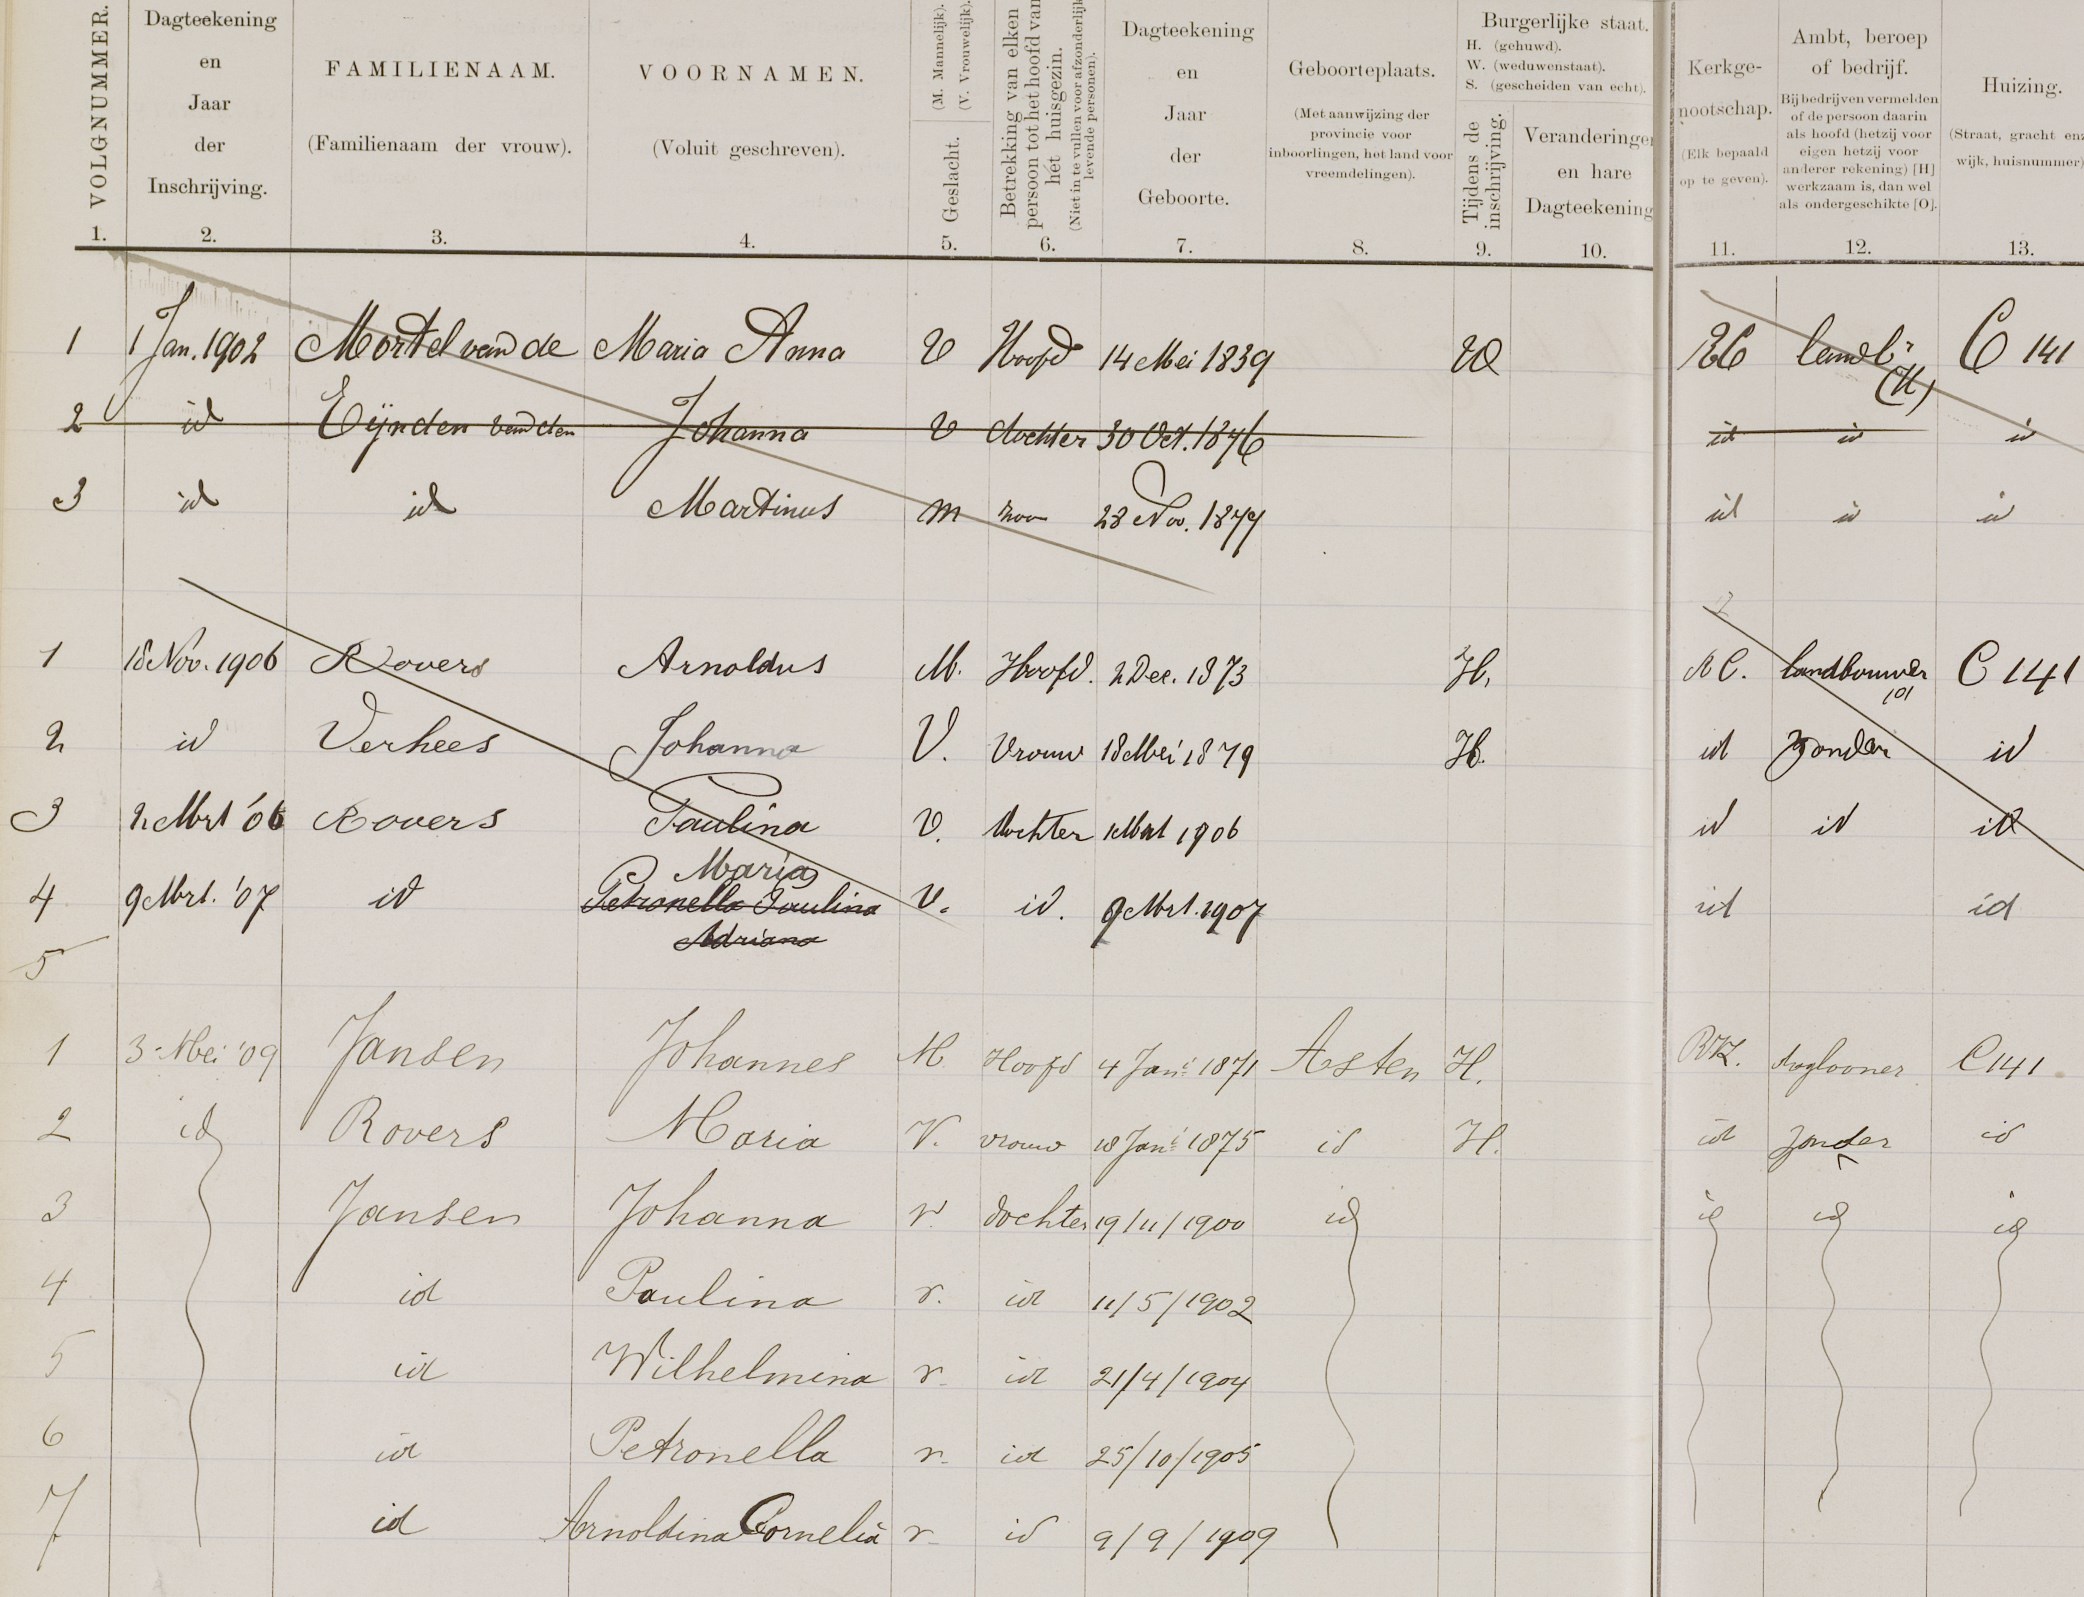 VOLGNUMMER.
1.
Dagteekening
en
Jaar
der
Inschrijving.
2.
FAMILIENAAM.
(Familienaam der vrouw).
3.
VOORNAMEN.
(Voluit geschreven).
4.
Geslacht.
(M. Mannelijk).
(V. Vrouwelijk).
5.
Betrekking van elken
persoon tot het hoofd van
het huisgezin.
(Niet in te vullen voor afzonderlijk
levende personen).
6.
Dagteekening
en
Jaar
der
Geboorte.
7.
Geboorteplaats.
(Met aanwijzing der
provincie voor
inboorlingen, het land voor
vreemdelingen).
8.
Burgerlijke staat.
H. (gehuwd).
W. (weduwenstaat).
S. (gescheiden van echt).
Tijdens de
inschrijving.
9.
Veranderingen
en hare
Dagteekening
10.
Kerkge-
nootschap.
(Elk bepaald
op te geven).
11.
Ambt, beroep
of bedrijf.
Bij bedrijven vermelden
of de persoon daarin
als hoofd (hetzij voor
eigen hetzij voor
anderer rekening) [H]
werkzaam is, dan wel
als ondergeschikte [O].
12.
Huizing.
(Straat, gracht enz
wijk, huisnummer)
13.
1 1 Jan. 1902 Mortel van de Maria Anna V Hoofd 14 Mei 1839 W RC landbr (H) C 141
2 id Eijnden van den Johanna V dochter 30 Oct. 1876 id id id
3 id id Martinus m zoon 28 Nov. 1877 id id id
1 18 Nov. 1906 Rovers Arnoldus M. Hoofd. 2 Dec. 1873 H. RC. landbouwer C 141
2 id Verhees Johanna V. Vrouw 18 Mei 1879 H. id zonder id
3 2 Mrt '06 Rovers Paulina V. dochter 1 Mrt 1906 id id id
Maria
4 9 Mrt. '07 id Petronella Paulina V. id. 9 Mrt. 1907 id id
Adriana
5
1 3 Mei '09 Jansen Johannes M Hoofd 4 Jani 1871 Asten H. RK. daglooner C 141
2 id Rovers Maria V. vrouw 18 Jani 1875 id H. id zonder id
3 Jansen Johanna v. dochter 19/11/1900 id id id id
4 id Paulina v. id 11/5/1902
5 id Wilhelmina v. id 21/4/1904
6 id Petronella v. id 25/10/1905
7 id Arnoldina Cornelia v. id 9/9/1909